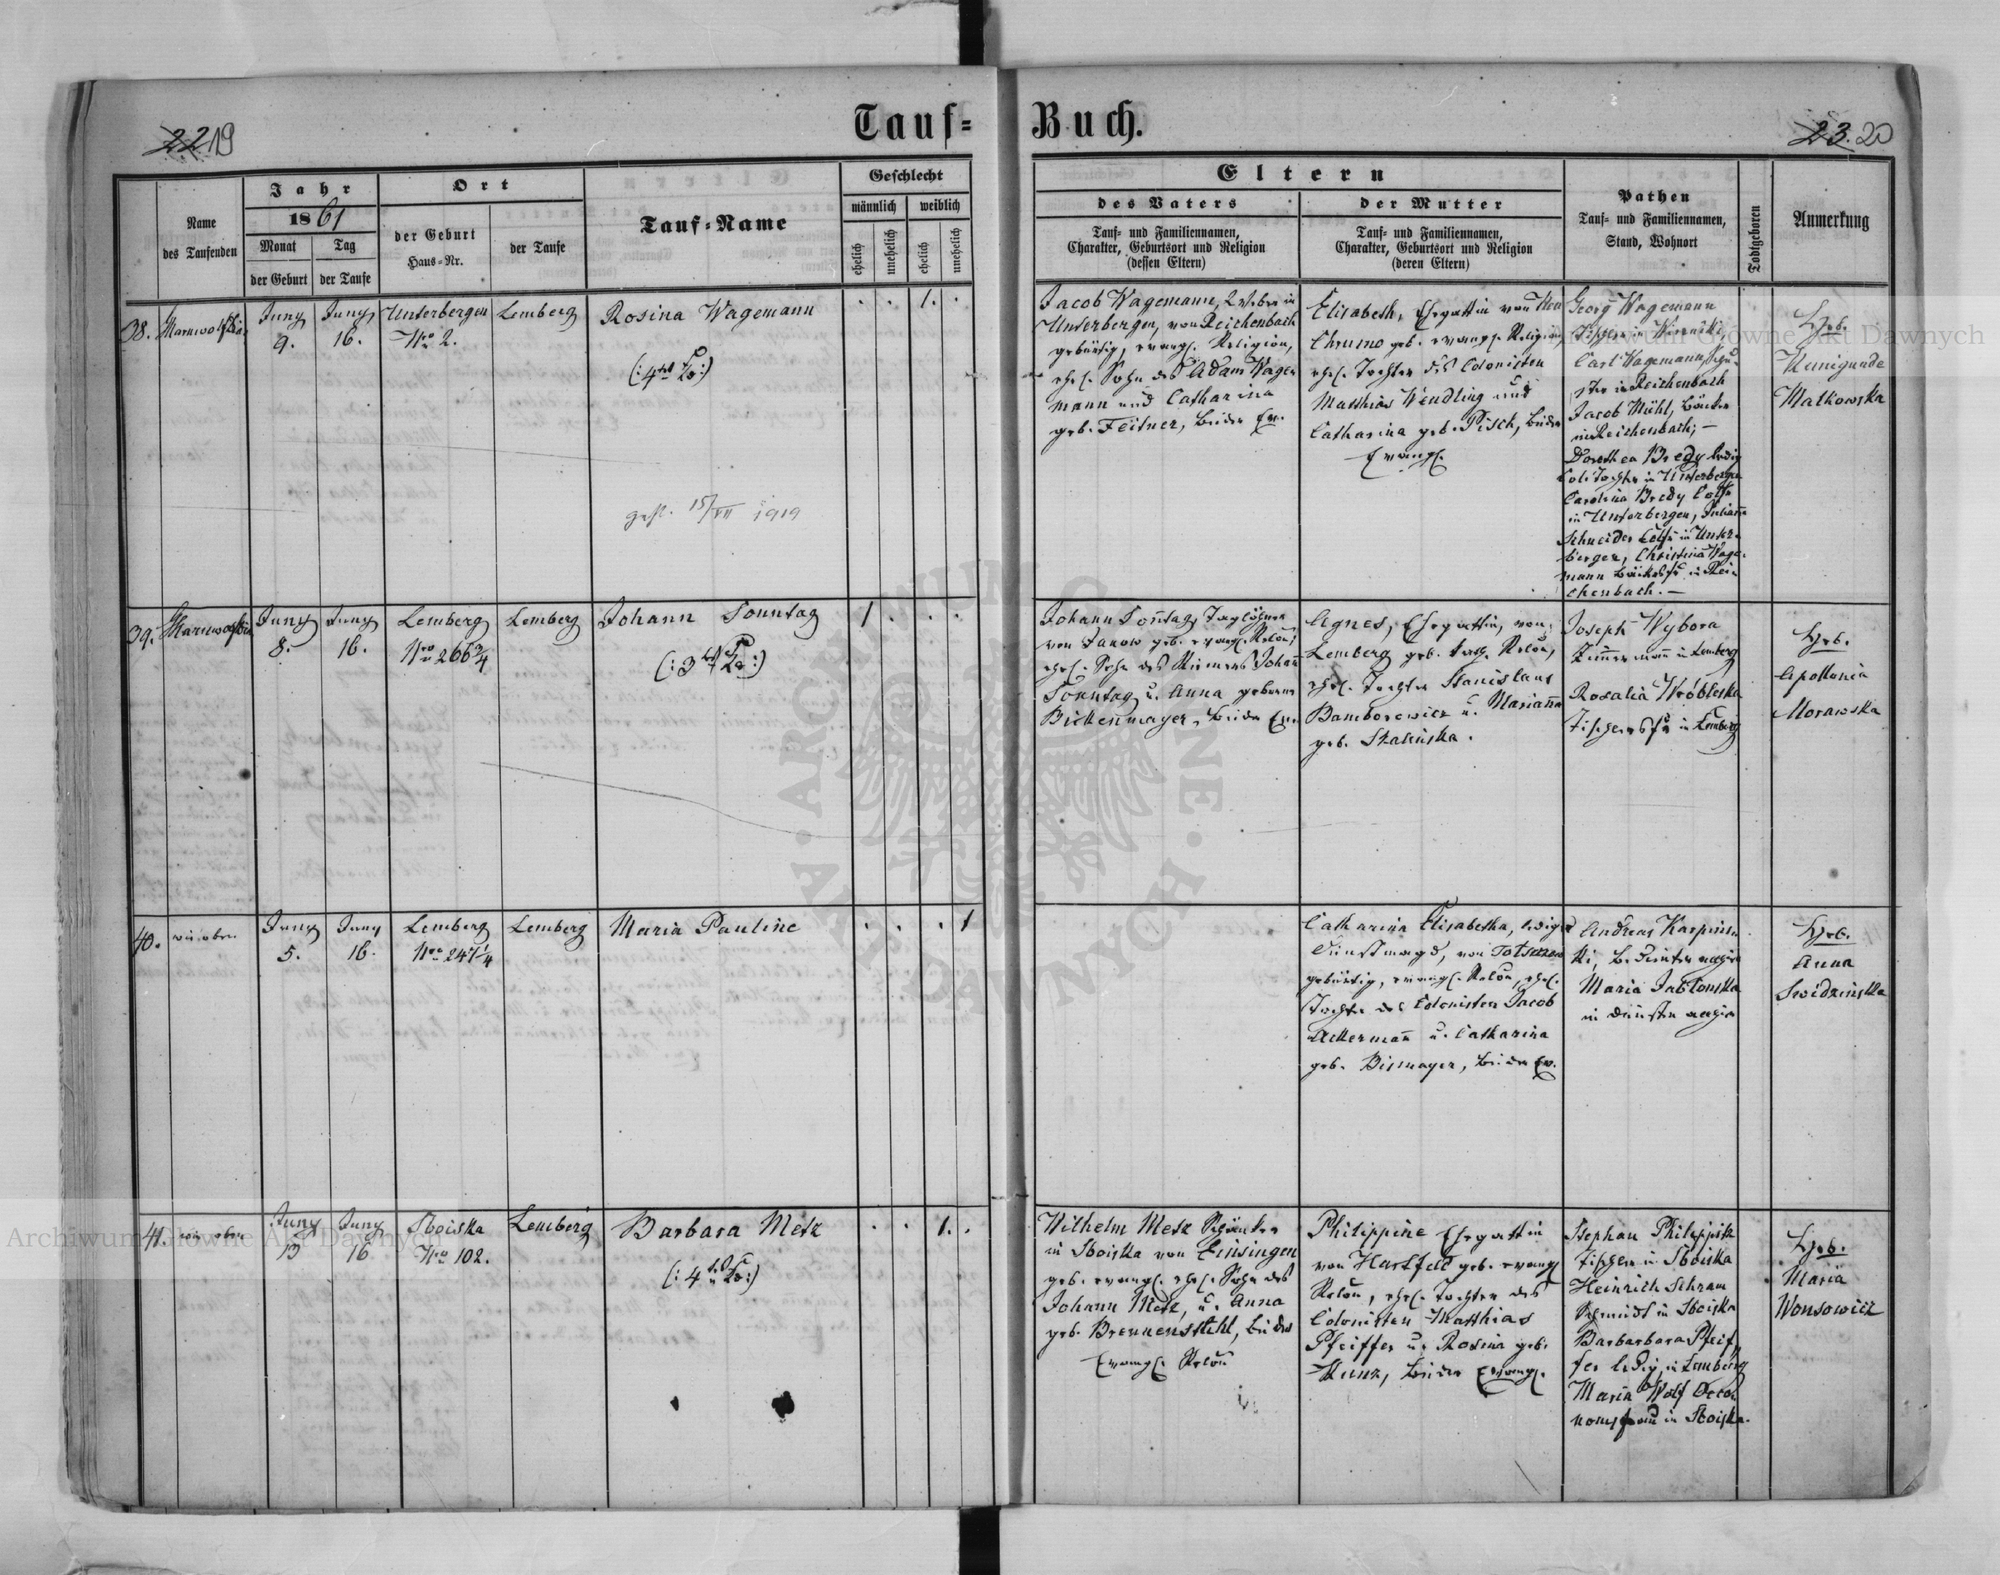 22 19
Tauf= Buch.
23. 20
Name
des Taufenden
Jahr
1861
Monat
der Geburt
Tag
der Taufe
Ort
der Geburt
Haus=Nr.
der Taufe
Tauf=Name
Geschlecht
männlich
weiblich
ehelich
unehelich
ehelich
unehelich
Eltern
des Vaters
Tauf= und Familiennamen,
Charakter, Geburtsort und Religion
(dessen Eltern)
der Mutter
Tauf= und Familiennamen,
Charakter, Geburtsort und Religion
(deren Eltern)
Pathen
Tauf= und Familiennamen,
Stand, Wohnort
Todtgeboren
Anmerkung
38.
Juny
9.
Juny
16.
Unterbergen
Nro 2.
Lemberg
Rosina Wagemann
gest. 15/VII 1919
1.
Jacob Wagemann, Weber in
Unterbergen, von Reichenbach
gebürtig, evang. Religion,
ehel. Sohn des Adam Wage
mann und Catharina
geb. Feitner, beide Ev.
Elisabeth, Ehegattin von
Chrusno geb. evang. Religion,
ehel. Tochter des Colonisten
Matthias Wendling und
Catharina geb. Pisch, beide
Evang.
Georg Wagemann
Carl Wagemann,
in Reichenbach
Jacob Mühl,
in Reichenbach; —
Dorothea Bredy ledig
Tochter in Unterbergen
Carolina Bredy
in Unterbergen,
Schneider in Unter-
bergen, Christina Wage-
mann in Rei-
chenbach. —
Heb.
Kunigunde
Malkowska
39.
Juny
8.
Juny
16.
Lemberg
Nro 266 3/4
Lemberg
Johann Sonntag
1
Johann Sonntag, Taglöhner
von Janow geb. evang. Relon,
ehel. Sohn des Johann
Sonntag u. Anna geborne
Bickenmayer, beide Ev.
Agnes, Ehegattin, von
Lemberg geb. Relon,
ehel. Tochter Stanislaus
Bamborowicz u. Marianna
geb. Stalinska.
Joseph Wybora
Zimmermann in Lemberg
Rosalia Wróbleska
in Lemberg
Heb.
Apollonia
Morawska
40.
wie oben
Juny
5.
Juny
16.
Lemberg
Nro 247 1/4
Lemberg
Maria Pauline
1
Catharina Elisabetha, ledige
Dienstmagd, von
gebürtig, evang. Relon, ehel.
Tochter des Colonisten Jacob
Ackermann u. Catharina
geb. Bismayer, beide Ev.
Andreas Karpins-
ki,
Maria Jablonska
in Diensten
Heb.
Anna
Swidzinska
41.
wie oben
Juny
Juny
16
Sboiska
Nro 102.
Lemberg
Barbara Metz
1.
Wilhelm Metz
in Sboiska von Einsingen
geb. evang. ehel. Sohn des
Johann Metz, u. Anna
geb. Brennenstuhl, beide
Evang. Relon
Philippine Ehegattin
von Hartfeld geb. evang
Relon, ehel. Tochter des
Colonisten Matthias
Pfeiffer u. Rosina geb.
Kunz, beide Evang.
Stephan
Tischler in Sboiska
Heinrich Schram
Schmidt in Sboiska
Barbarbara Pfeif
fer ledig, in Lemberg
Maria Wolf Oeco
nomsfrau in Sboiska.
Heb.
Maria
Wonsowicz
Archiwum Główne Akt Dawnych
Archiwum Główne Akt Dawnych
ARCHIWUM GŁÓWNE AKT DAWNYCH